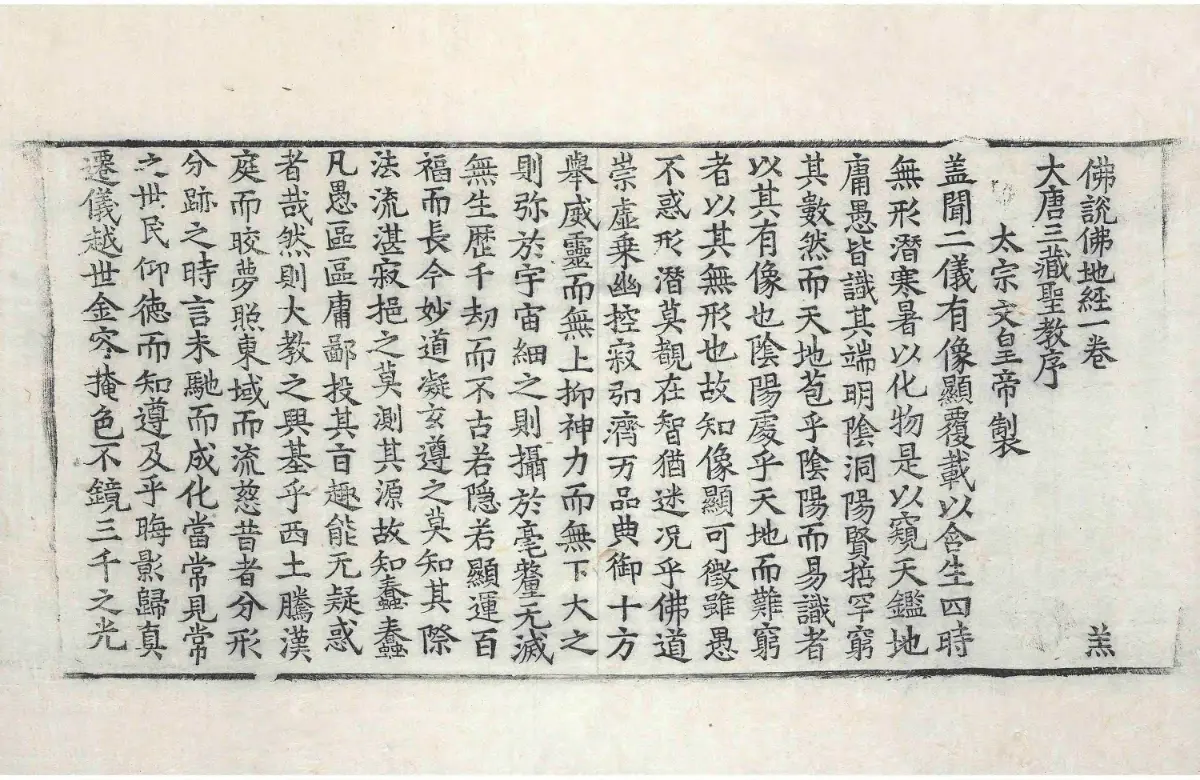 佛說佛地經一卷 羔
大唐三藏聖教序
太宗文皇帝製
盖聞二儀有像顯覆載以含生四時
無形潛寒暑以化物是以窺天鑑地
庸愚皆識其端明陰洞陽賢哲罕窮
其數然而天地苞乎陰陽而易識者
以其有像也陰陽處乎天地而難窮
者以其無形也故知像顯可徵雖愚
不惑形潛莫覩在智猶迷况乎佛道
崇虛乗幽控寂弘濟万品典御十方
舉威靈而無上抑神力而無下大之
則弥於宇宙細之則攝於毫釐无滅
無生歷千劫而不古若隐若顯運百
福而長今妙道凝玄遵之莫知其際
法流湛寂挹之莫測其源故知蠢蠢
凡愚區區庸鄙投其旨趣能无疑惑
者哉然則大教之興基乎西土騰漢
庭而皎夢照東域而流慈昔者分形
分跡之時言未馳而成化當常見常
之世民仰德而知遵及乎晦影歸真
遷儀越世金容掩色不鏡三千之光